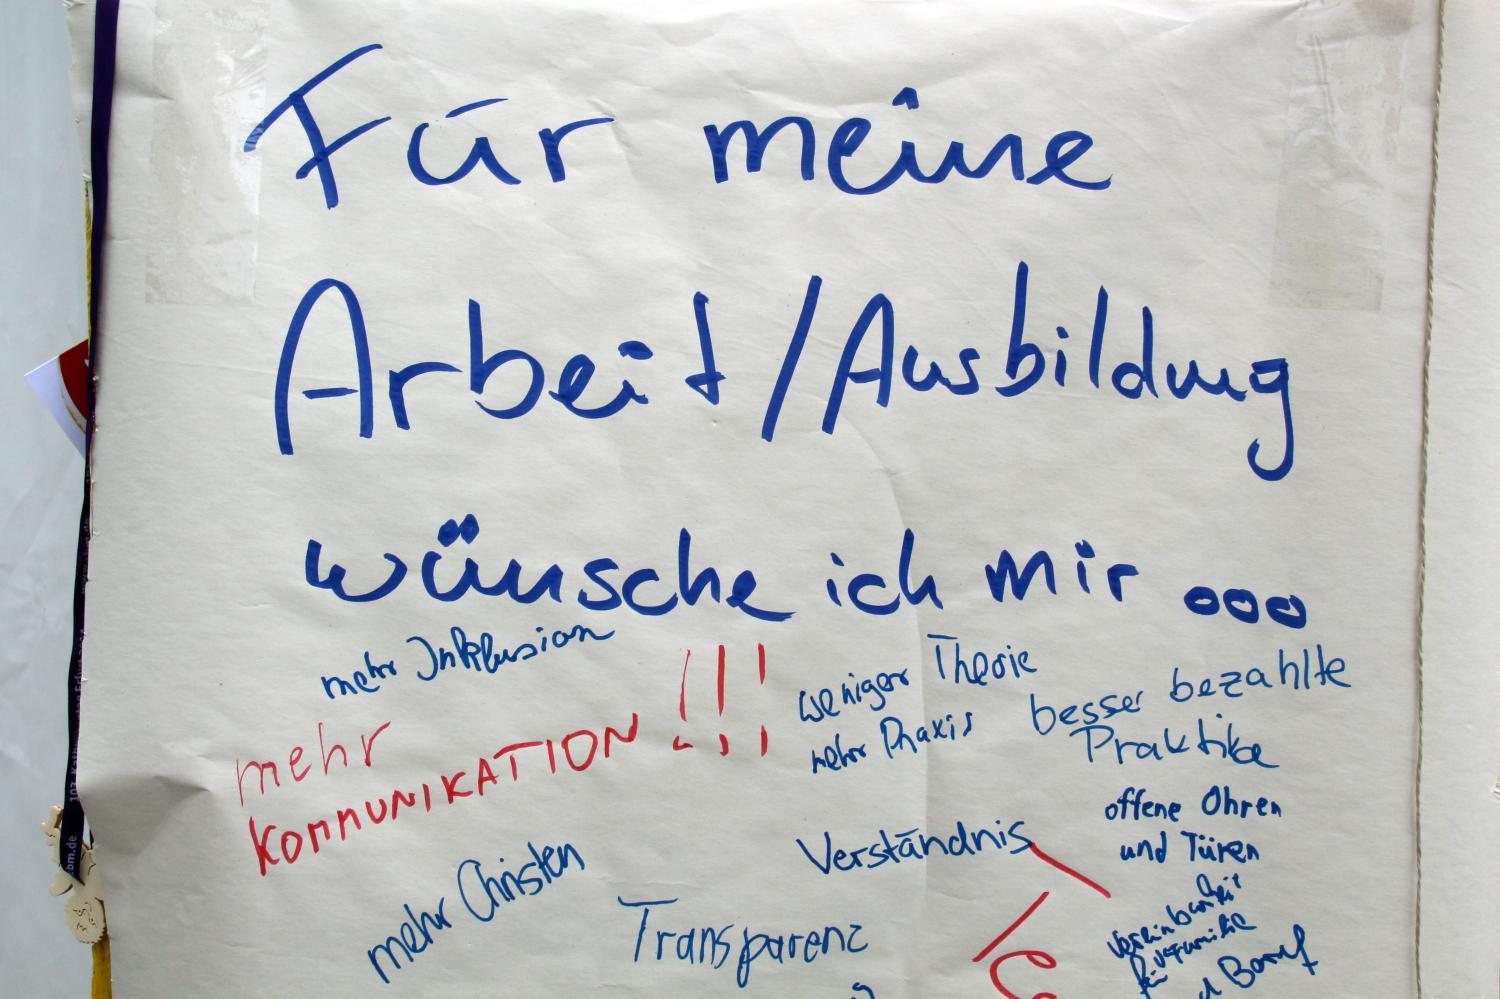 Für meine
Arbeit/Ausbildung
wünsche ich mir ...
mehr Inklusion
mehr
KOMMUNIKATION !!!
weniger Theorie
mehr Praxis
besser bezahlte
Praktika
offene Ohren
und Türen
Verständnis
mehr Christen
Transparenz
Vereinbarkeit
für Familie
und Beruf
bm.de